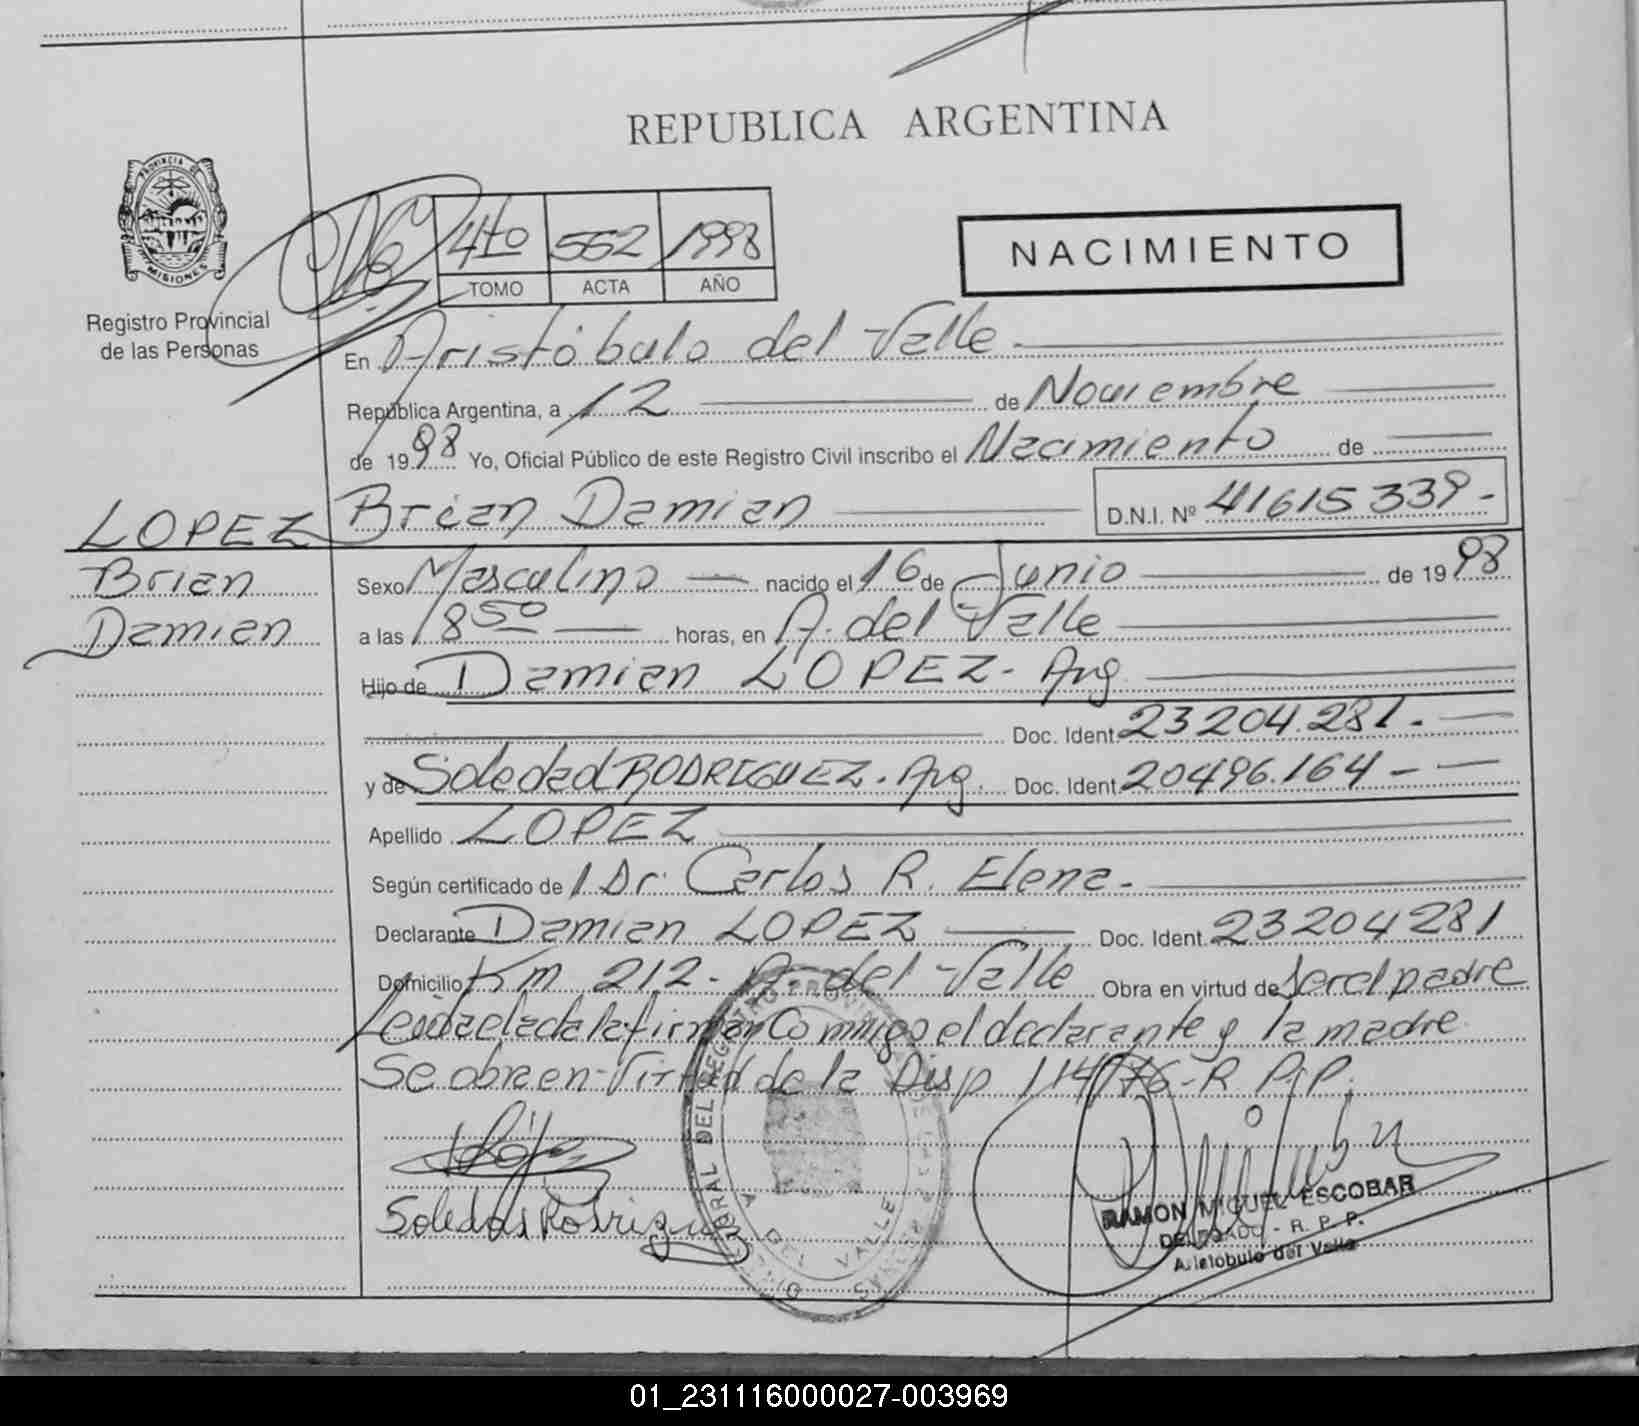 REPUBLICA ARGENTINA
PROVINCIA DE
MISIONES
Registro Provincial
de las Personas
4to 552 1998
TOMO ACTA AÑO
NACIMIENTO
En Aristóbulo del Valle
República Argentina, a 12 de Noviembre
de 1998 Yo, Oficial Público de este Registro Civil inscribo el Nacimiento de
Brian Damian D.N.I. Nº 41615339-
LOPEZ
Brian
Damian
Sexo Masculino nacido el 16 de Junio de 1998
a las 18 50 horas, en A. del Valle
Hijo de Damian LOPEZ- Arg
Doc. Ident 23204.281.-
y de Soledad RODRIGUEZ. Arg. Doc. Ident. 20496.164-
Apellido LOPEZ
Según certificado de 1 Dr. Carlos R. Elena-
Declarante Damian LOPEZ Doc. Ident. 23204281
Domicilio Km 212- A. del Valle Obra en virtud de ser el padre
Leida el acta la firman conmigo el declarante y la madre
Se obra en virtud de la Disp 114/76-R.P.P.
López
Soledad Rodriguez
A. DEL VALLE
RAMON MIGUEL ESCOBAR
DELEGADO - R. P. P.
Aristobulo del Valle
01_231116000027-003969